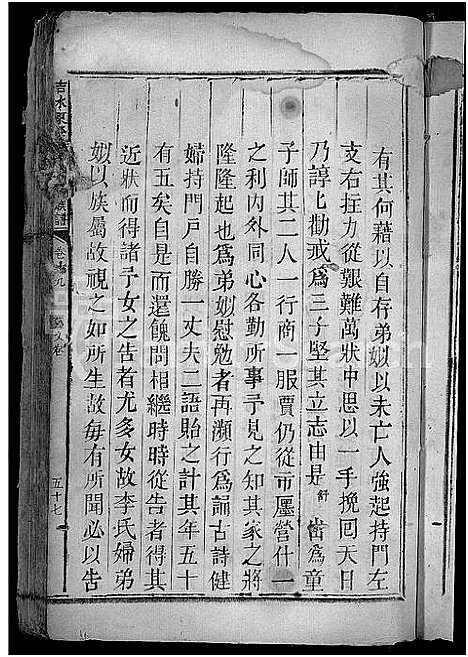 有其何藉以自存弟姒以未亡人強起持門左
支右拄力從艱難萬狀中思以一手挽囘天日
乃諄匕勸戒爲三子堅其立志由是舒 啚爲童
子師其二人一行商一服賈仍從市廛營什一
之利内外同心各勤所事予見之知其家之將
隆隆起也爲弟姒慰勉者再瀕行爲誦古詩健
婦持門戶自勝一丈夫二語貽之計其年五十
有五矣自是而還餽問相繼時時從告者得其
近狀而得諸予女之告者尤多女故李氏婦弟
姒以族屬故視之如所生故每有所聞必以告
吉水
族譜
卷
五十七